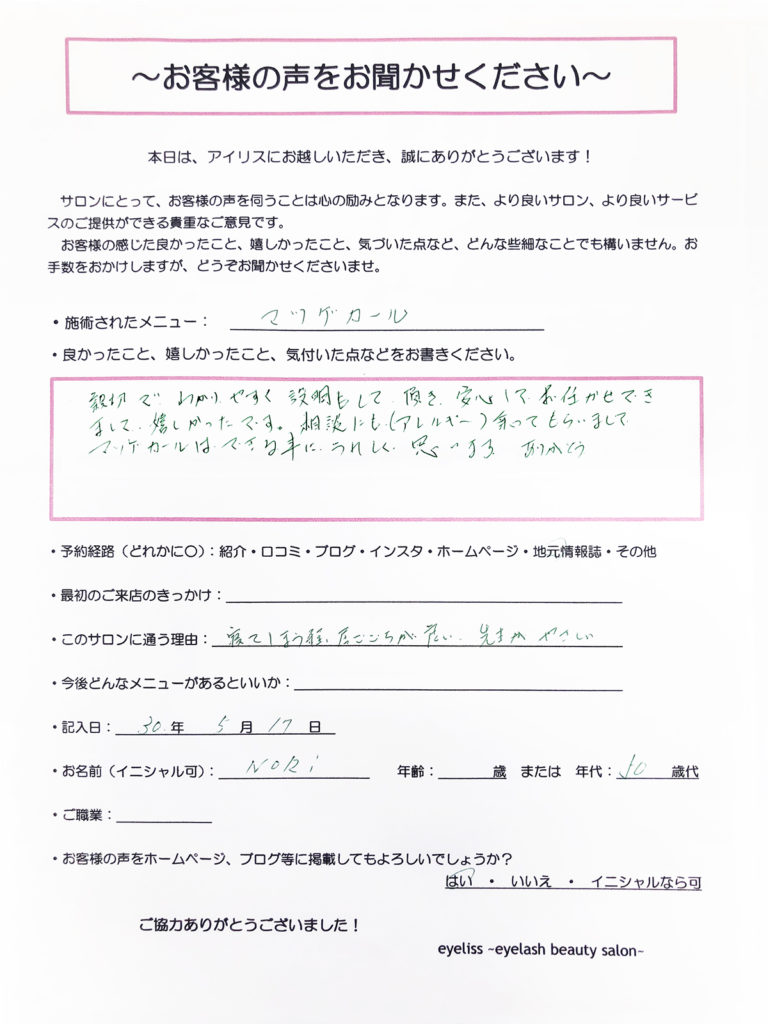 ～お客様の声をお聞かせください～
本日は、アイリスにお越しいただき、誠にありがとうございます！
サロンにとって、お客様の声を伺うことは心の励みとなります。また、より良いサロン、より良いサービ
スのご提供ができる貴重なご意見です。
お客様の感じた良かったこと、嬉しかったこと、気づいた点など、どんな些細なことでも構いません。お
手数をおかけしますが、どうぞお聞かせくださいませ。
・施術されたメニュー： マツゲカール
・良かったこと、嬉しかったこと、気付いた点などをお書きください。
親切で わかりやすく 説明もして 頂き、安心して お任かせでき
まして、嬉しかったです。相談にも(アレルギー)乗ってもらいまして
マツゲカールは できる事に、うれしく 思います ありがとう
・予約経路（どれかに〇）：紹介・口コミ・ブログ・インスタ・ホームページ・地元情報誌・その他
・最初のご来店のきっかけ：
・このサロンに通う理由： 寝てしまう程、居ごこちが 良い、先生が やさしい
・今後どんなメニューがあるといいか：
・記入日： 30 年 5 月 17 日
・お名前（イニシャル可）： NORi 年齢： 歳 または 年代： 50 歳代
・ご職業：
・お客様の声をホームページ、ブログ等に掲載してもよろしいでしょうか？
はい ・ いいえ ・ イニシャルなら可
ご協力ありがとうございました！
eyeliss ~eyelash beauty salon~